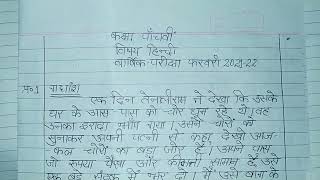 कक्षा पाँचवी
विषय हिन्दी
वार्षिक परीक्षा फरवरी 2021-22
प्र०1 गद्यांश
एक दिन तेनालीराम ने देखा कि उसके
घर के आस-पास दो चोर घूम रहे थे। वह
उनका इरादा समझ गया। उसने चोरों को
सुनाकर अपनी पत्नी से कहा देखो आज-
कल चोरों का बड़ा जोर है। अपने पास
जो रुपया पैसा और कीमती सामान है उसे
एक बड़े संदूक में भर दो। मैं उसे बाग के